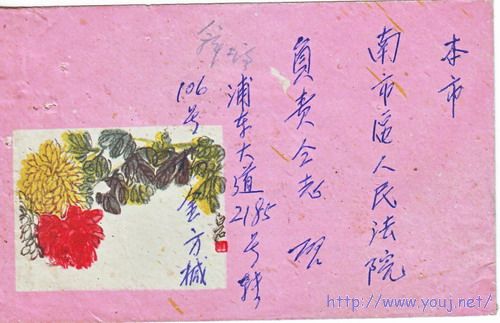 本市
南市區人民法院
負責仝志
浦东大道2185号转
106号 金方械
http://www.youj.net/